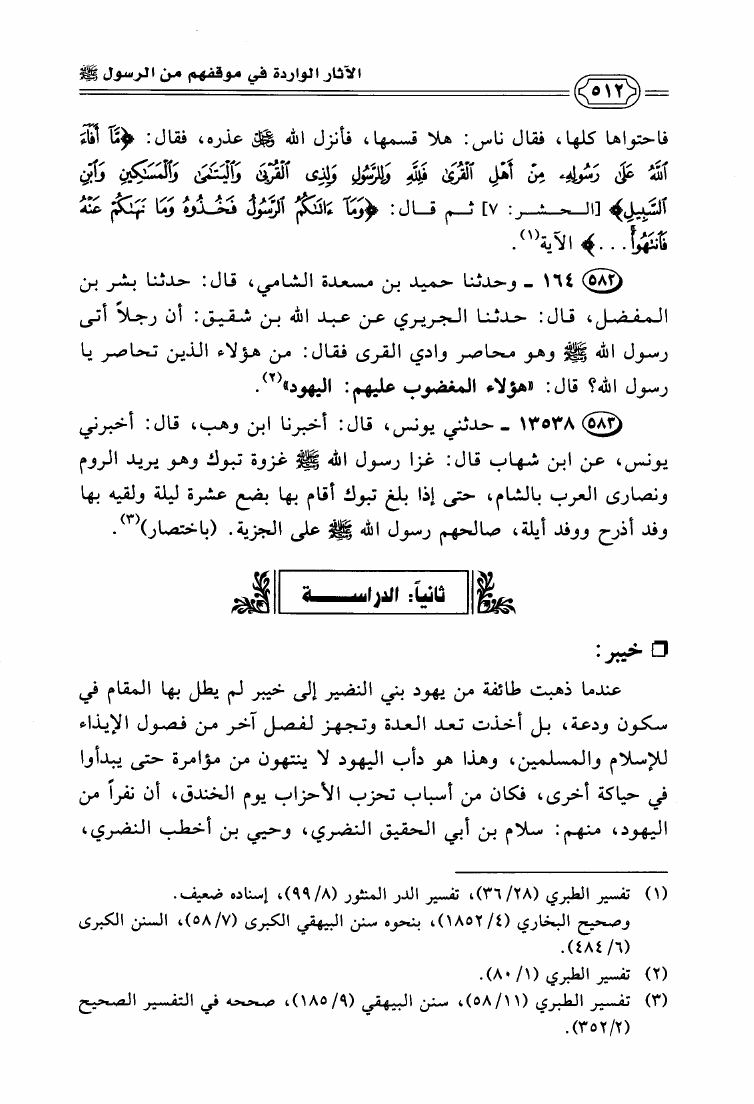 الآثار الواردة في موقفهم من الرسول ﷺ
٥١٢
فاحتواها كلها، فقال ناس: هلا قسمها، فأنزل الله ﷻ عذره، فقال: ﴿مَّآ أَفَآءَ
ٱللَّهُ عَلَىٰ رَسُولِهِۦ مِنْ أَهْلِ ٱلْقُرَىٰ فَلِلَّهِ وَلِلرَّسُولِ وَلِذِى ٱلْقُرْبَىٰ وَٱلْيَتَـٰمَىٰ وَٱلْمَسَـٰكِينِ وَٱبْنِ
ٱلسَّبِيلِ﴾ [الـحـشـر: ٧] ثـم قـال: ﴿وَمَآ ءَاتَىٰكُمُ ٱلرَّسُولُ فَخُذُوهُ وَمَا نَهَىٰكُمْ عَنْهُ
فَٱنتَهُوا۟ . . .﴾ الآية(١).
٥٨٢ ١٦٤ ـ وحدثنا حميد بن مسعدة الشامي، قال: حدثنا بشر بن
المفضل، قال: حدثنا الجريري عن عبد الله بن شقيق: أن رجلاً أتى
رسول الله ﷺ وهو محاصر وادي القرى فقال: من هؤلاء الذين تحاصر يا
رسول الله؟ قال: «هؤلاء المغضوب عليهم: اليهود»(٢).
٥٨٣ ١٣٥٣٨ ـ حدثني يونس، قال: أخبرنا ابن وهب، قال: أخبرني
يونس، عن ابن شهاب قال: غزا رسول الله ﷺ غزوة تبوك وهو يريد الروم
ونصارى العرب بالشام، حتى إذا بلغ تبوك أقام بها بضع عشرة ليلة ولقيه بها
وفد أذرح ووفد أيلة، صالحهم رسول الله ﷺ على الجزية. (باختصار)(٣).
ثانياً: الدراســـــة
❒ خيبر:
عندما ذهبت طائفة من يهود بني النضير إلى خيبر لم يطل بها المقام في
سكون ودعة، بل أخذت تعد العدة وتجهز لفصل آخر من فصول الإيذاء
للإسلام والمسلمين، وهذا هو دأب اليهود لا ينتهون من مؤامرة حتى يبدأوا
في حياكة أخرى، فكان من أسباب تحزب الأحزاب يوم الخندق، أن نفراً من
اليهود، منهم: سلام بن أبي الحقيق النضري، وحيي بن أخطب النضري،
(١) تفسير الطبري (٣٦/٢٨)، تفسير الدر المنثور (٩٩/٨)، إسناده ضعيف.
وصحيح البخاري (١٨٥٢/٤)، بنحوه سنن البيهقي الكبرى (٥٨/٧)، السنن الكبرى
(٤٨٤/٦).
(٢) تفسير الطبري (٨٠/١).
(٣) تفسير الطبري (٥٨/١١)، سنن البيهقي (١٨٥/٩)، صححه في التفسير الصحيح
(٣٥٢/٢).